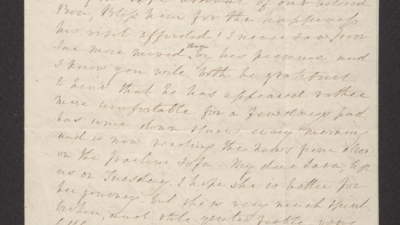 Bless him for the happiness
his visit afforded! I never saw poor
more moved than by his presence and
I know you will both be grateful
to hear that he has appeared rather
more comfortable for a few days past
has come down stairs every morning
and is now reading the notes from
on the Sofa - My dear Sara left
us on Tuesday, I hope she is better for
her journey - but she is very much
broken, and still quite feeble